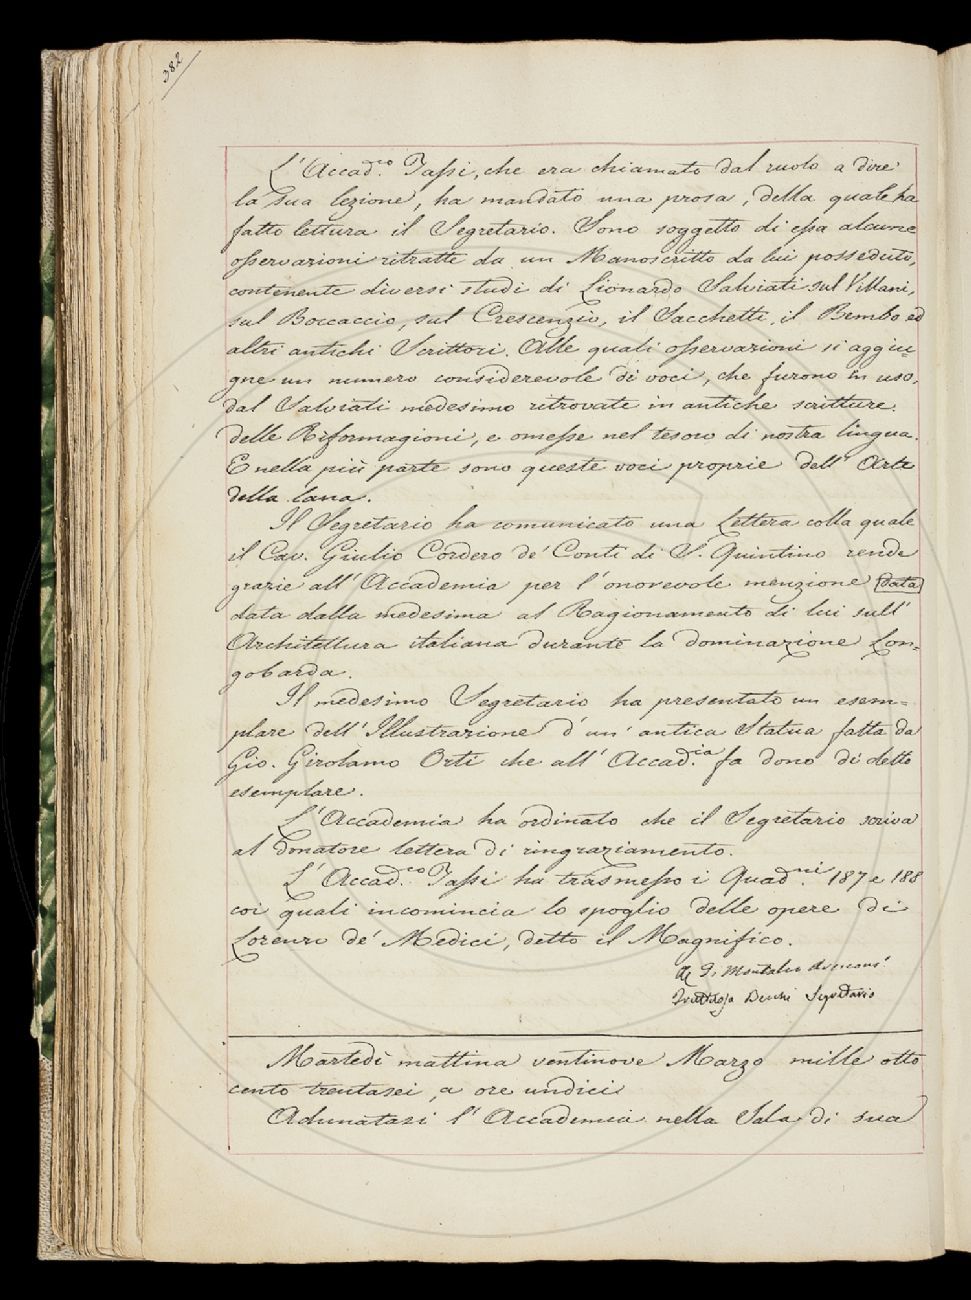 382
L'Accad.co Tassi, che era chiamato dal ruolo a dire
la sua lezione, ha mandato una prosa, della quale ha
fatto lettura il Segretario. Sono soggetto di essa alcune
osservazioni ritratte da un Manoscritto da lui posseduto,
contenente diversi studi di Lionardo Salviati sul Villani,
sul Boccaccio, sul Crescenzio, il Sacchetti, il Bembo ed
altri antichi Scrittori. Alle quali osservazioni si aggiu=
gne un numero considerevole di voci, che furono in uso,
dal Salviati medesimo ritrovate in antiche scritture
delle Riformagioni, e omesse nel tesoro di nostra lingua.
E nella più parte sono queste voci proprie dell'Arte
della lana.
Il Segretario ha comunicato una Lettera colla quale
il Cav. Giulio Cordero de' Conti di S. Quintino rende
grazie all'Accademia per l'onorevole menzione data
data dalla medesima al Ragionamento di lui sull'
Architettura italiana durante la dominazione Lon=
gobarda.
Il medesimo Segretario ha presentato un esem=
plare dell'Illustrazione d'un'antica Statua fatta da
Gio. Girolamo Orti che all'Accad.ia fa dono di detto
esemplare.
L'Accademia ha ordinato che il Segretario scriva
al donatore lettera di ringraziamento.
L'Accad.co Tassi ha trasmesso i Quad.ni 187 e 188
coi quali incomincia lo spoglio delle opere di
Lorenzo de' Medici, detto il Magnifico.
Montalvo
Segretario
Martedì mattina ventinove Marzo mille otto
cento trentasei, a ore undici
Adunatasi l'Accademia nella Sala di sua